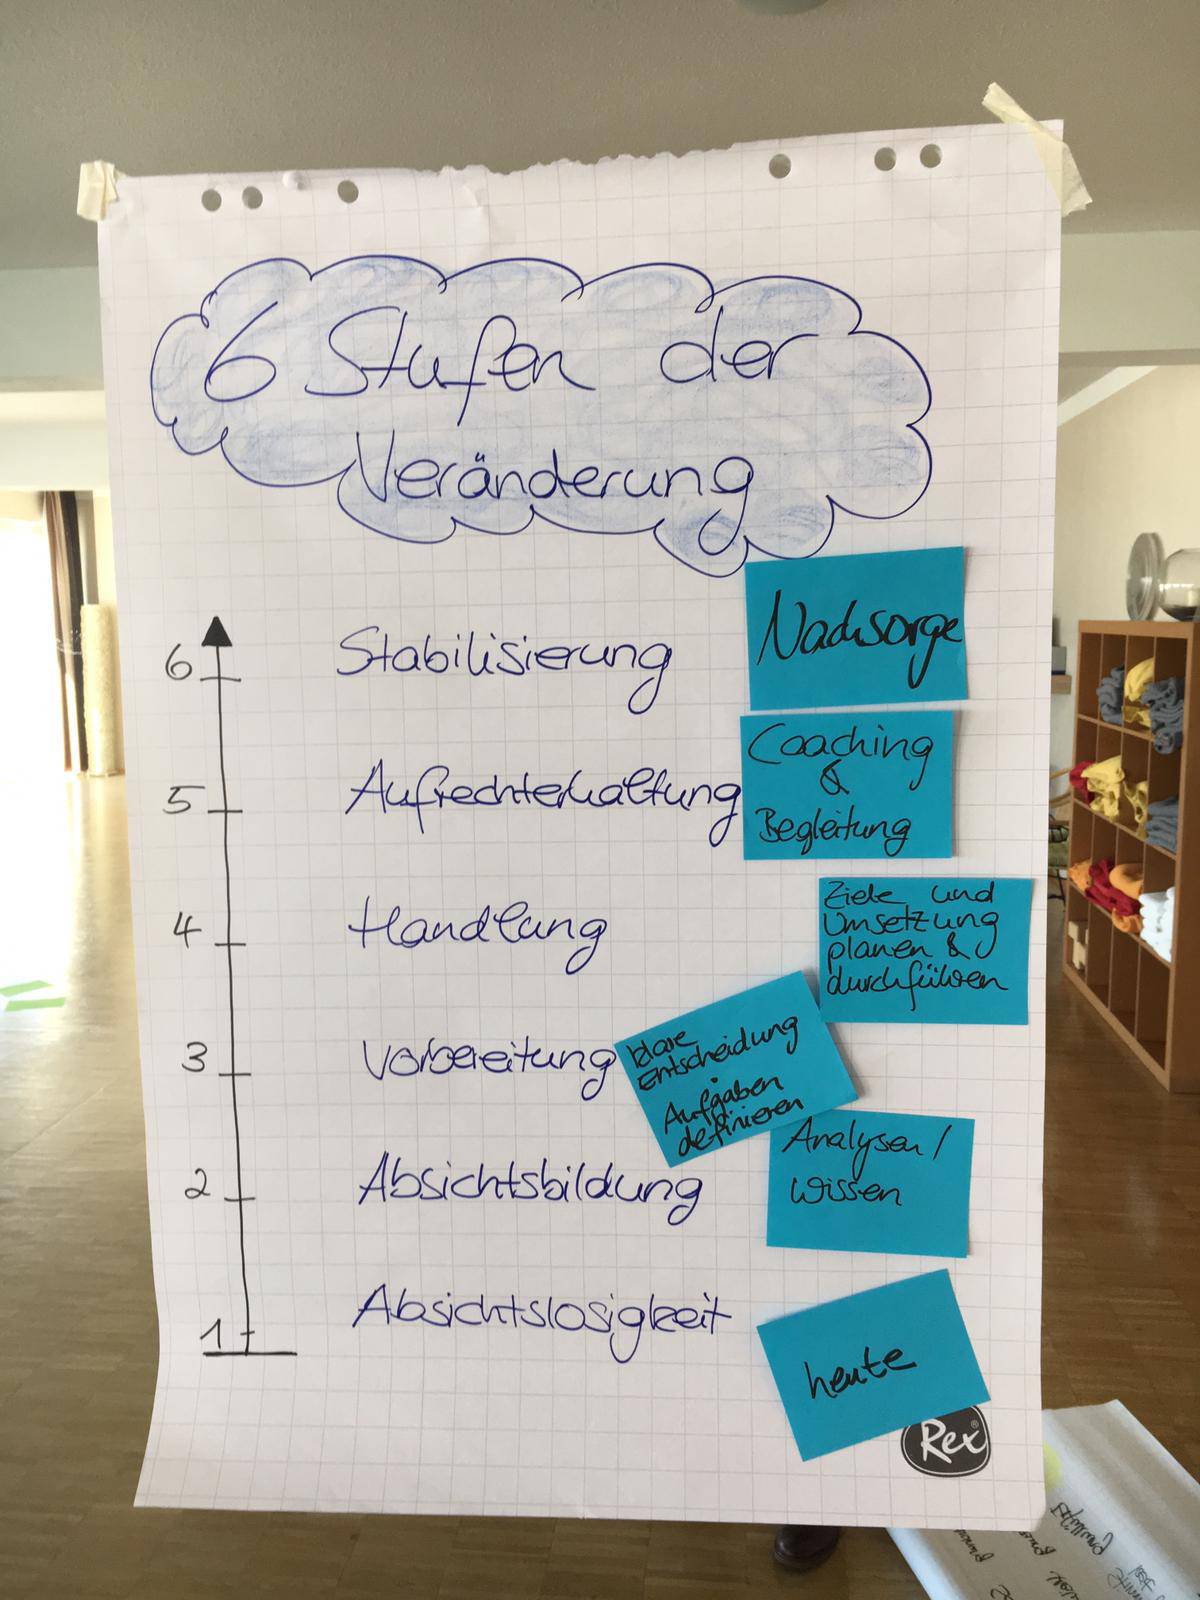 6 Stufen der
Veränderung
6 Stabilisierung
Nachsorge
5 Aufrechterhaltung
Coaching
&
Begleitung
4 Handlung
Ziele und
Umsetzung
planen &
durchführen
3 Vorbereitung
klare
Entscheidung
Aufgaben
definieren
2 Absichtsbildung
Analysen /
Wissen
1 Absichtslosigkeit
heute
Rex